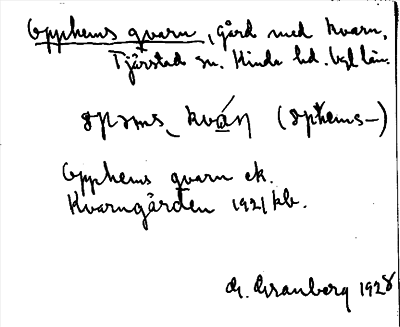 Opphems qvarn, Gård med kvarn,
Tjärstad sn. Kinda hd. Vgl län.
opəms kván (ophems-)
Opphems qvarn ek.
Kvarngården 1921 kb.
G. Granberg 1928